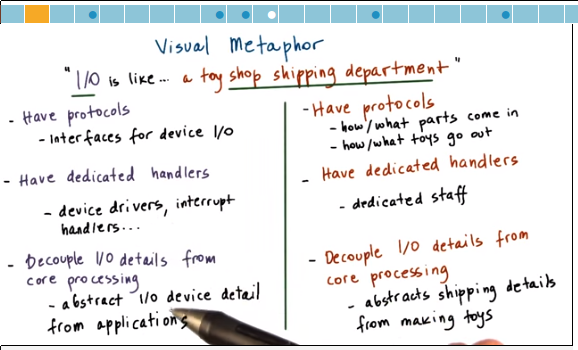 Visual Metaphor
"I/O is like... a toy shop shipping department"
- Have protocols
- Interfaces for device I/O
- Have dedicated handlers
- device drivers, interrupt
handlers...
- Decouple I/O details from
core processing
- abstract I/O device detail
from applications
- Have protocols
- how/what parts come in
- how/what toys go out
- Have dedicated handlers
- dedicated staff
- Decouple I/O details from
core processing
- abstracts shipping details
from making toys